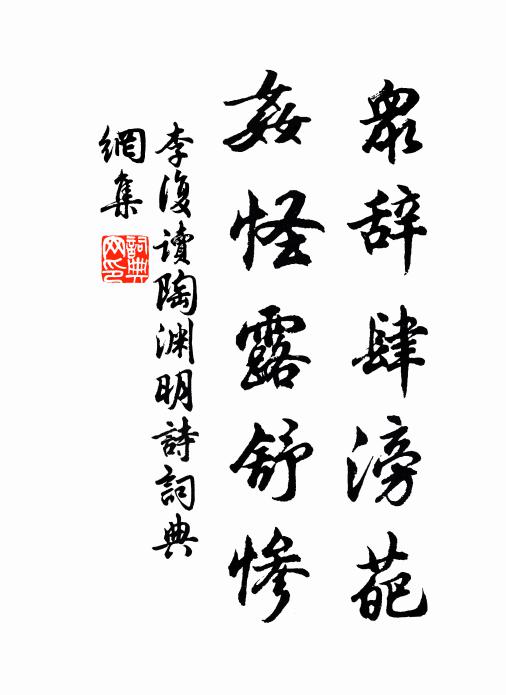 眾辞肆滂葩
姦怪露舒慘
李復讀陶渊明詩詞典
網集
詞典
网印